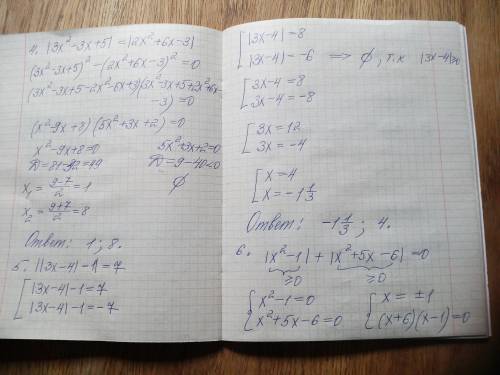 4. |3x²-3x+5|=|2x²+6x-3|
(3x²-3x+5)²-(2x²+6x-3)²=0
(3x²-3x+5-2x²-6x+3)(3x²-3x+5+2x²+6x-
-3)=0
(x²-9x+8)(5x²+3x+2)=0
x²-9x+8=0 5x²+3x+2=0
D=81-32=49 D=9-40<0
x₁=(9-7)/2=1 ∅
x₂=(9+7)/2=8
Ответ: 1; 8.
5. ||3x-4|-1|=7
[|3x-4|-1=7
[|3x-4|-1=-7
[|3x-4|=8
[|3x-4|=-6 ⟹ ∅, т.к |3x-4|≥0
[3x-4=8
[3x-4=-8
[3x=12
[3x=-4
[x=4
[x=-1 1/3
Ответ: -1 1/3; 4.
6. |x²-1|+|x²+5x-6|=0
≥0 ≥0
{x²-1=0 {x=±1
{x²+5x-6=0 {(x+6)(x-1)=0